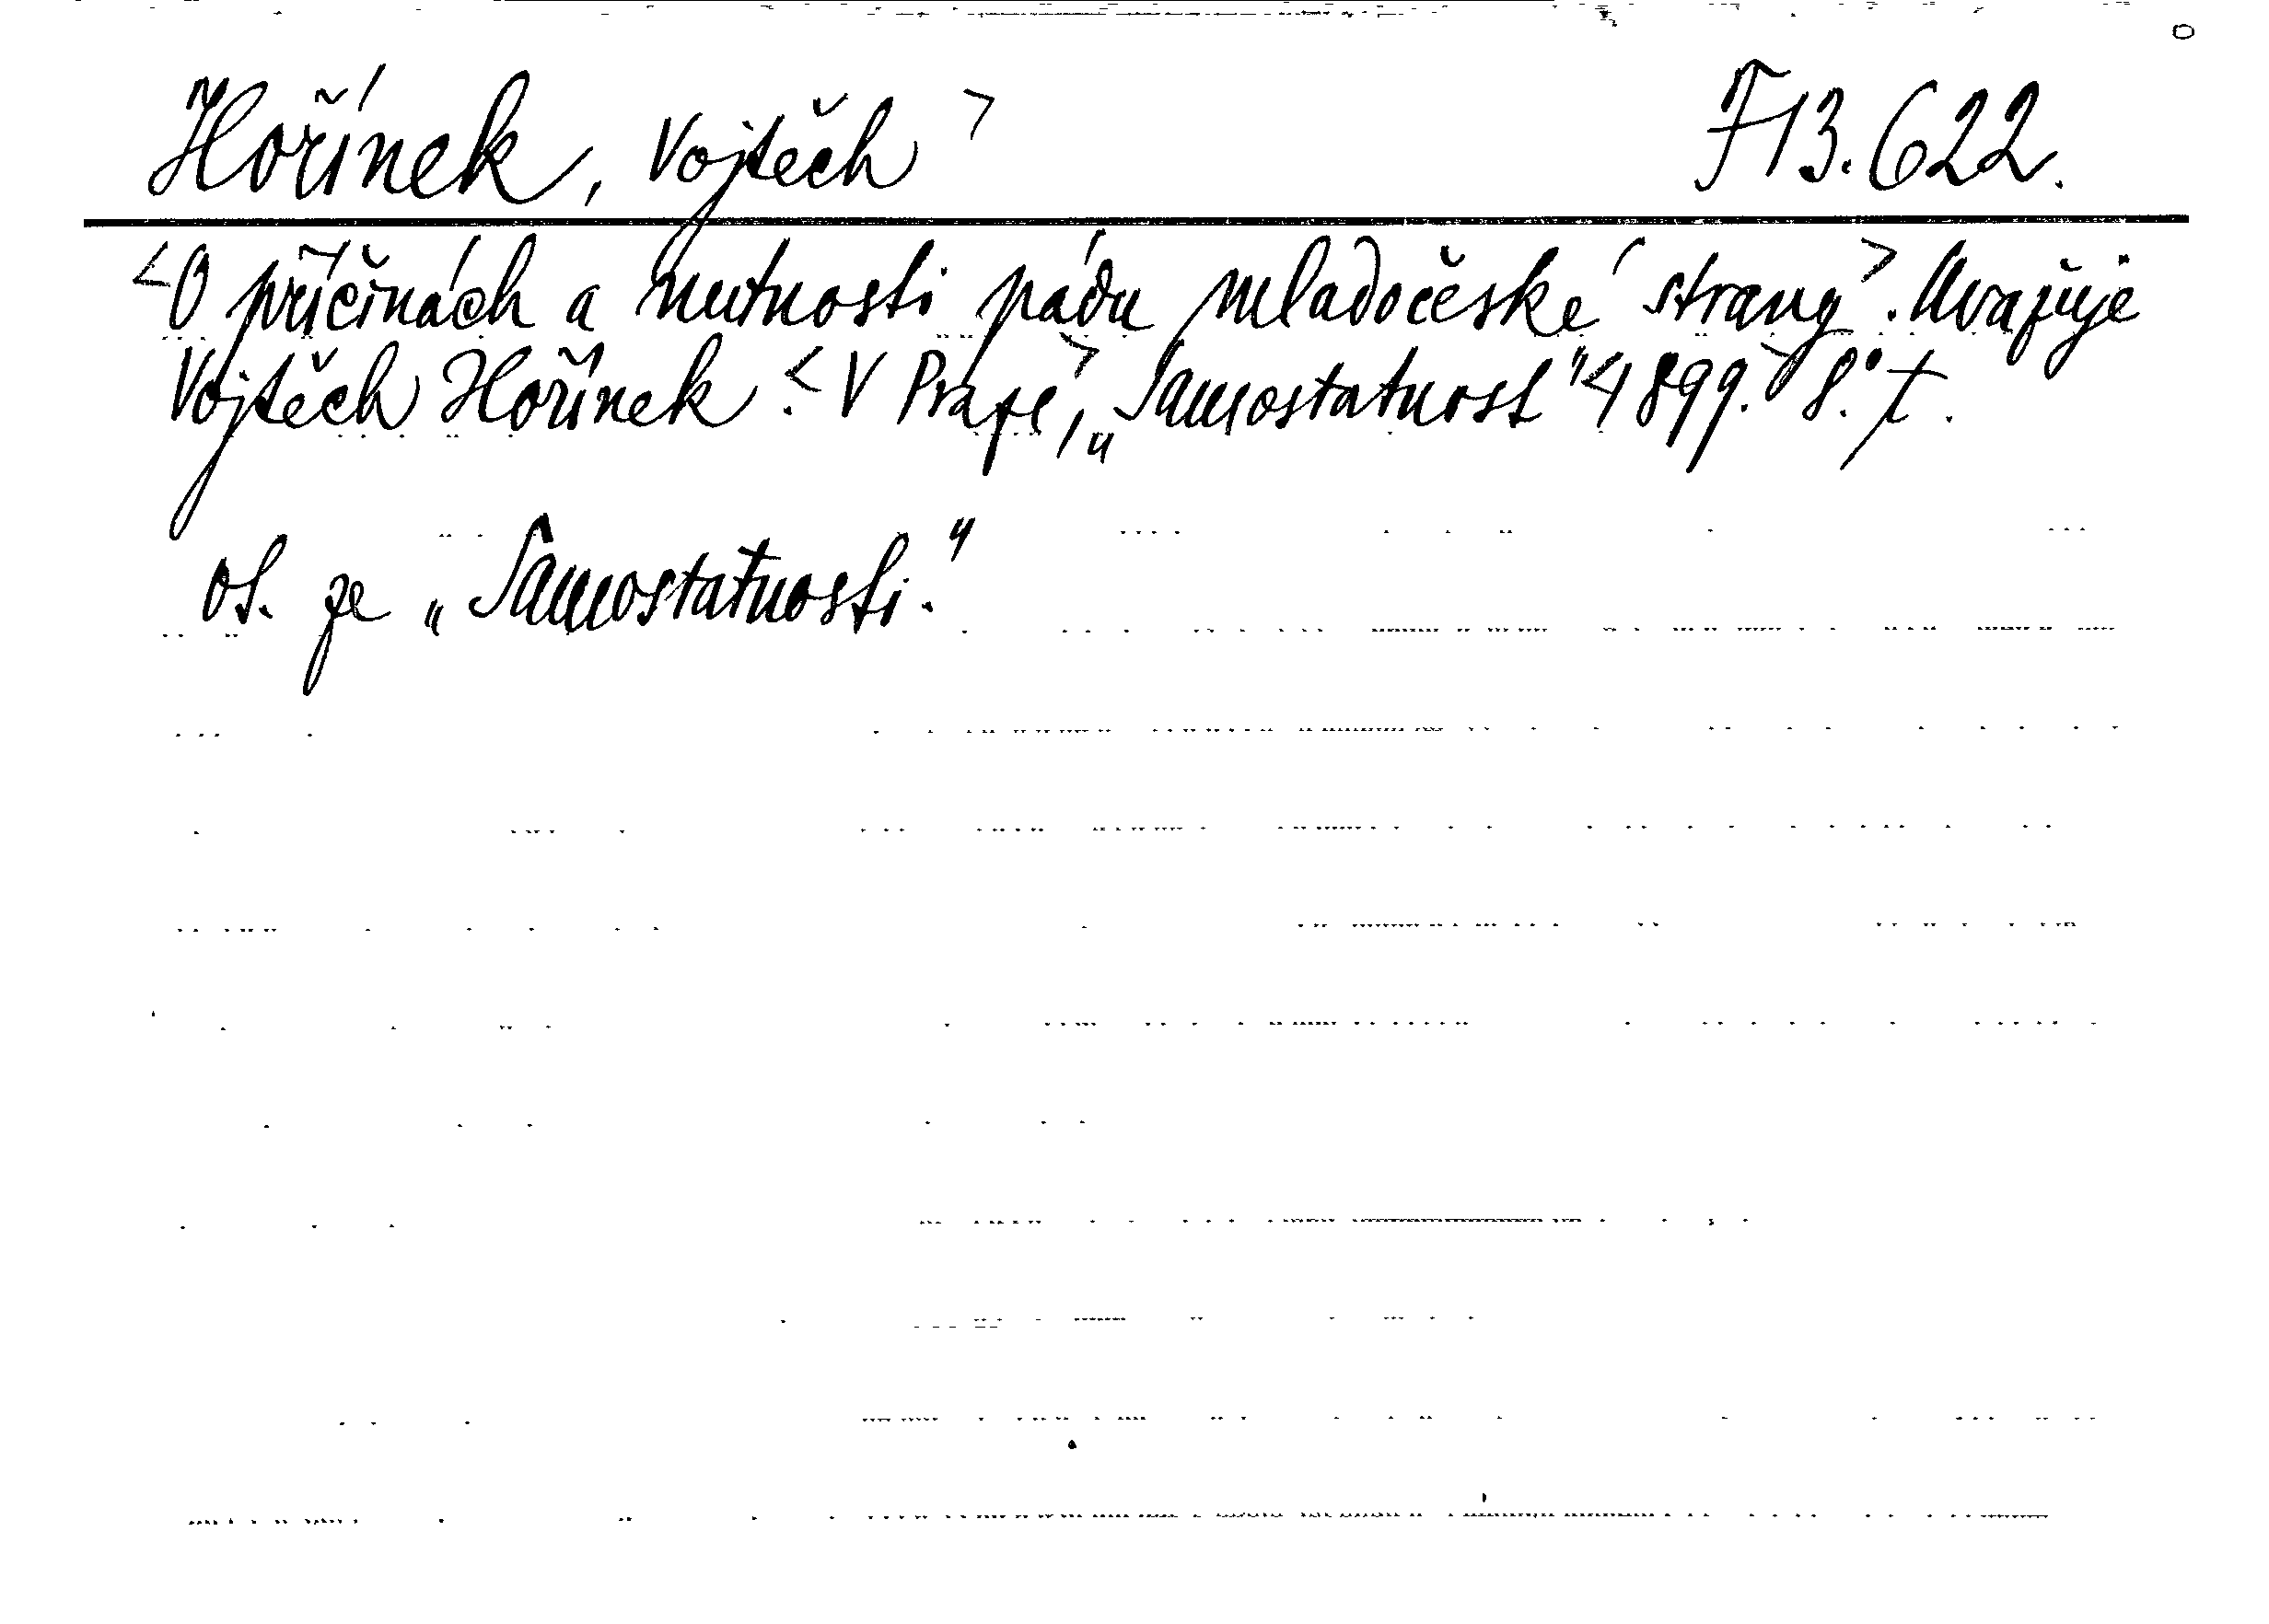 Hořínek, Vojtěch > F 13.622.
<O příčinách a nutnosti pádu mladočeské strany>. Uvažuje
Vojtěch Hořínek. <V Praze>, „Samostatnost" <1899.> 8.° t.
ot. ze „Samostatnosti."